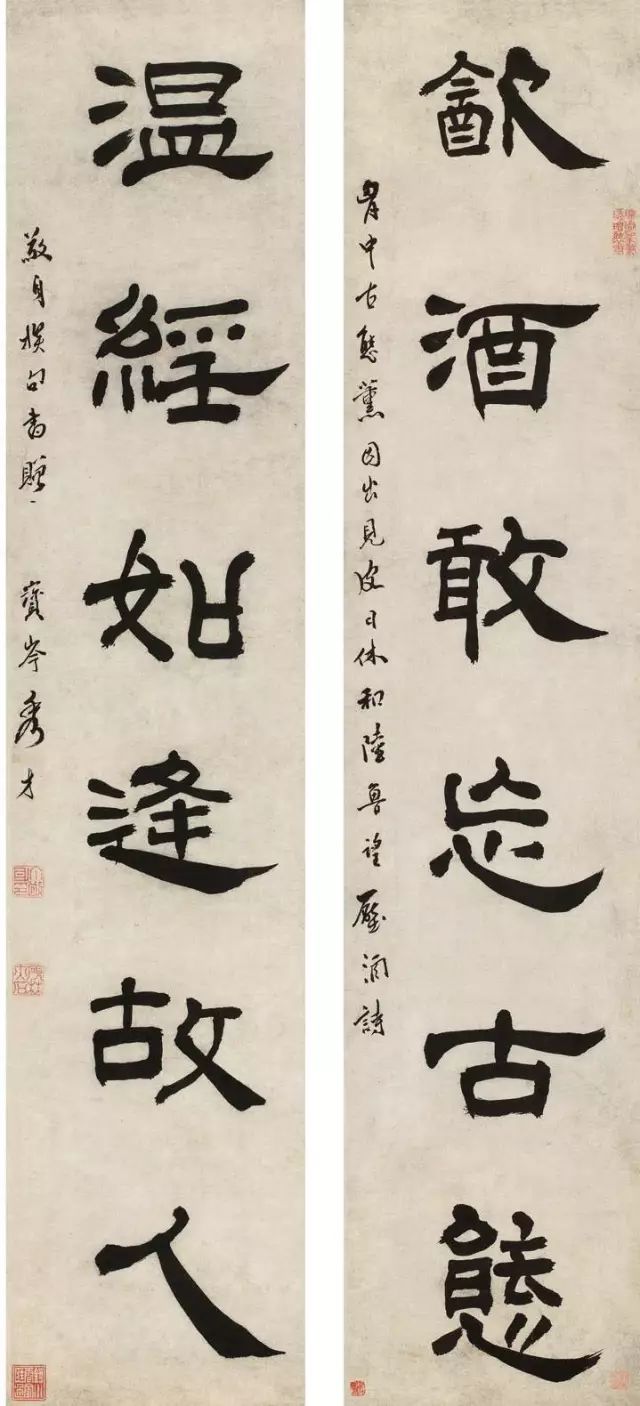 㱃酒敢忘古態
胷中古態薰因出見皮日休和陸魯望壓酒詩
温經如逢故人
敬身撰句書贈
寶岑秀才